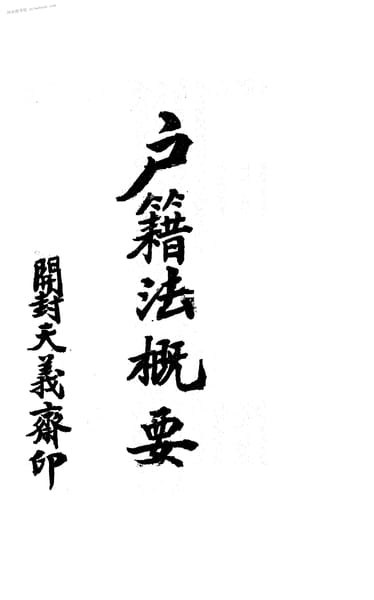 户籍法概要
開封天義齋印